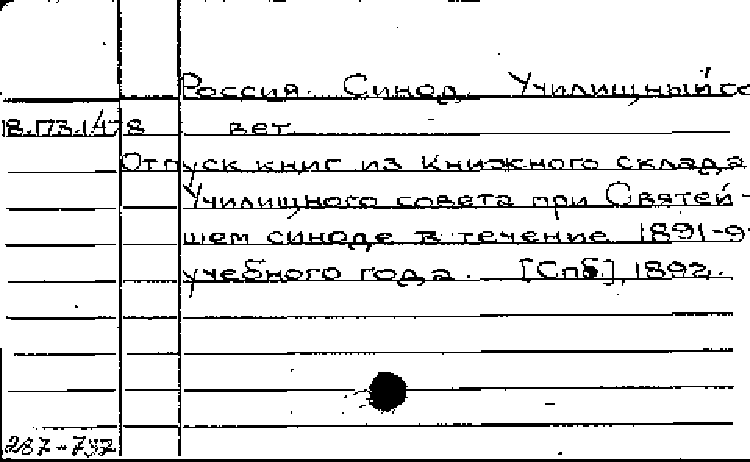 Россия. Синод. Училищный со
18.173.1.478 вет
Отпуск книг из Книжного склада
Училищного совета при Святей-
шем синоде в течение 1891-9
учебного года. [Спб], 1892.
287-737